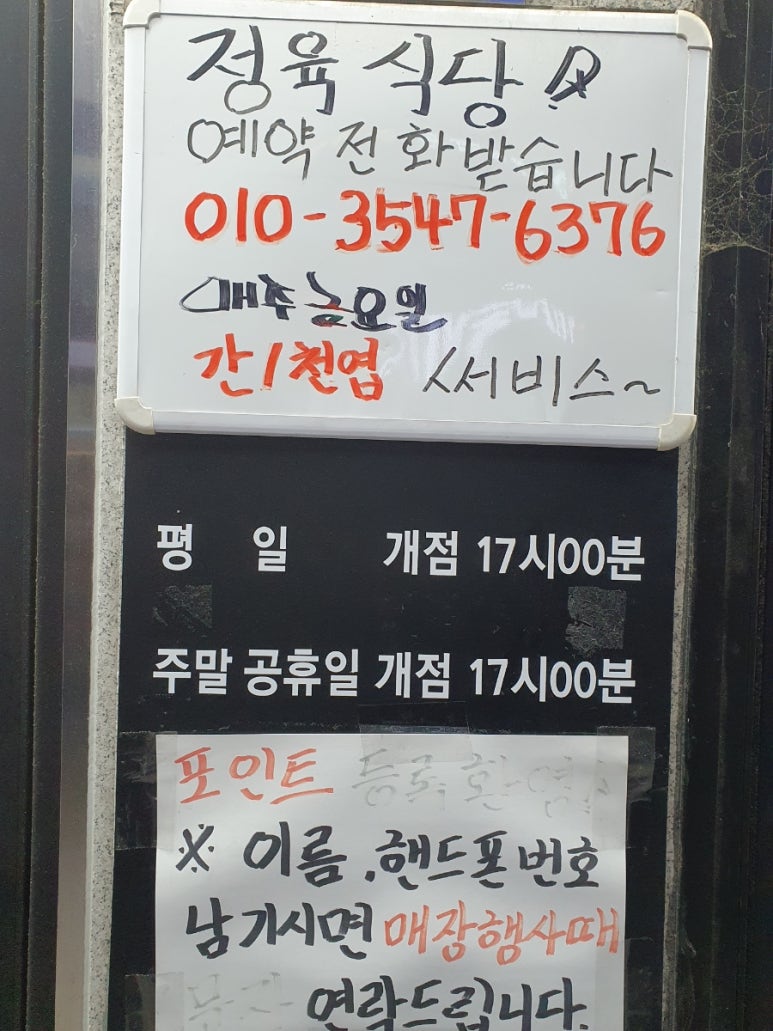 정육식당
예약전화받습니다
010-3547-6376
매주금요일
간/천엽 써비스~
평 일 개점 17시00분
주말 공휴일 개점 17시00분
포인트 등록 환영
※ 이름, 핸드폰번호
남기시면 매장행사때
연락드립니다.